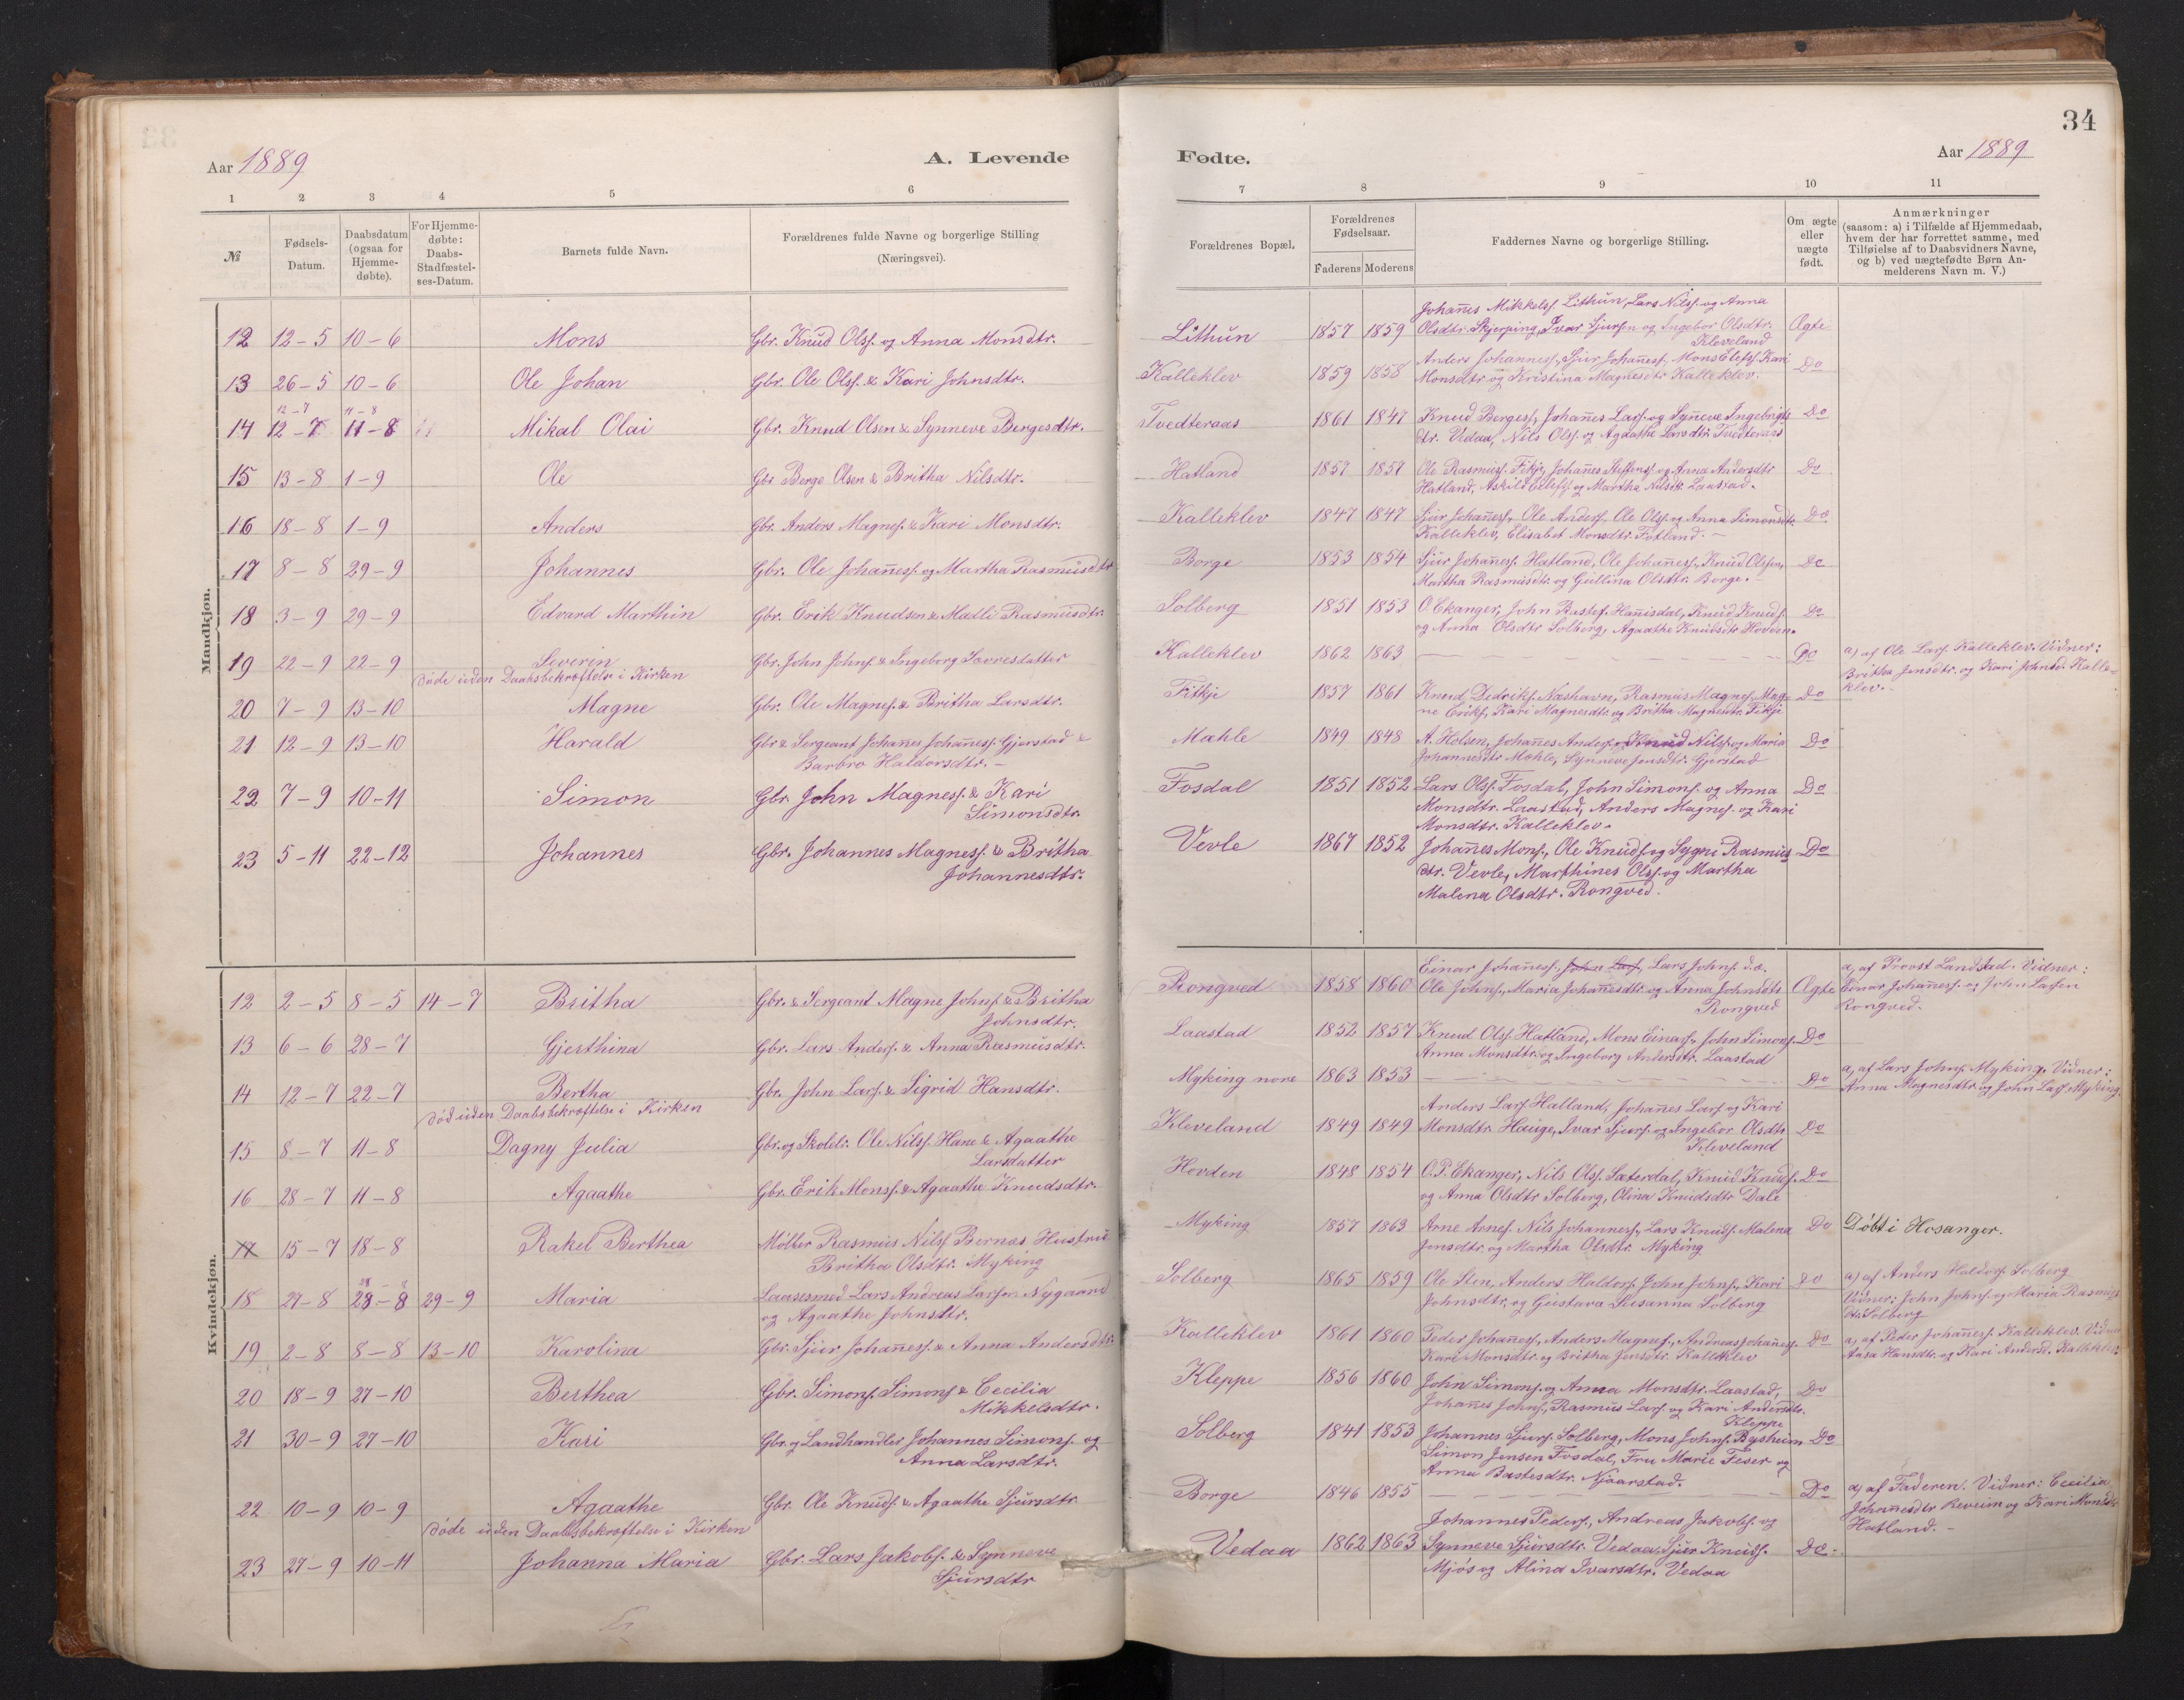 34
Aar 1889 A. Levende Fødte. Aar 1889
1 2 3 4 5 6 7 8 9 10 11
№
Fødsels-Datum.
Daabsdatum (ogsaa for Hjemme-døbte).
For Hjemme-døbte: Daabs-Stadfæstel-ses-Datum.
Barnets fulde Navn.
Forældrenes fulde Navne og borgerlige Stilling
(Næringsvei).
Forældrenes Bopæl.
Forældrenes Fødselsaar.
Faderens Moderens
Faddernes Navne og borgerlige Stilling.
Om ægte eller uægte født.
Anmærkninger
(saasom: a) i Tilfælde af Hjemmedaab,
hvem der har forrettet samme, med
Tilføielse af to Daabsvidners Navne,
og b) ved uægtefødte Børn An-
melderens Navn m. V.)
Mandkjøn.
12 12-5 10-6 Mons Gbr. Knud Olss. og Anna Monsdtr. Lithun 1857 1859 Johañes Mikkelss. Lithun, Lars Nilss. og Anna
Olsdtr. Skjerping, Ivar Sjursen og Ingebor Olsdtr. Ægte
Kleveland
13 26-5 10-6 Ole Johan Gbr. Ole Olss. & Kari Johnsdtr. Kalleklev 1859 1858 Anders Johanness., Sjur Johañess., Mons Elefs. Kari Do
Monsdtr og Kristina Magnesdtr Kalleklev.
12-7 11-8
14 12-7 11-8 Mikal Olai Gbr. Knud Olsen & Synneve Bergesdtr. Tvedteraas 1861 1847 Knud Bergess., Johañes Larss. og Syñeve Ingebrigts Do
dtr. Vedaa, Nils Olss. og Agaathe Larsdtr. Tvedteraas
15 13-8 1-9 Ole Gbr Berge Olsen & Britha Nilsdtr. Hatland 1857 1857 Ole Rasmuss. Fitje, Johañes Steffenss. og Anna Andersdtr Do
Hatland, Askild Eilefs. og Martha Nilsdtr. Laastad.
16 18-8 1-9 Anders Gbr. Anders Magness. & Kari Monsdtr. Kalleklev 1847 1847 Sjur Johañess., Ole Anderss, Ole Olss. og Anna Simonsdtr. Do
Kalleklev, Elisabet Monsdtr. Fotland.
17 8-8 29-9 Johannes Gbr. Ole Johañess. og Martha Rasmusdtr Borge 1853 1854 Sjur Johañess. Hatland, Ole Johañess., Knud Olsen, Do
Martha Rasmusdtr. og Gullina Olsdtr. Borge.
18 3-9 29-9 Edvard Marthin Gbr. Erik Knudsen & Madli Rasmusdtr. Solberg 1851 1853 O. Ekanger, John Bastes. Hañisdal, Knud Knuds. Do
og Anna Olsdtr Solberg, Agaathe Knudsdtr Hovden.
19 22-9 22-9 Severin Gbr. John Johns. & Ingeborg Sovresdatter Kalleklev 1862 1863 Do a) af Ole Larss. Kalleklev. Vidner:
døde uden Daabsbekræftelse i Kirken Britha Jensdtr. og Kari Johnsd. Kalle-
klev.
20 7-9 13-10 Magne Gbr. Ole Magness. & Britha Larsdtr. Fitje 1857 1861 Knud Dedriks. Næshavn, Rasmus Magness, Mag- Do
ne Eriks, Kari Magnesdtr. og Britha Magnesdtr. Fitje
21 12-9 13-10 Harald Gbr & Sergeant Johañes Johañess. Gjerstad & Mahle 1849 1848 A. Holsen, Johañes Anderss. Knud Nilss. og Maria Do
Barbro Haldorsdtr. Johannesdtr Mohle, Synneve Jensdtr. Gjerstad
22 7-9 10-11 Simon Gbr. John Magness. & Kari Fosdal 1851 1852 Lars Olss. Fosdal, John Simons. og Anna Do
Simonsdtr. Monsdtr. Laastad, Anders Magness. og Kari
Monsdtr. Kalleklev.
23 5-11 22-12 Johannes Gbr. Johannes Magness. & Britha Vevle 1867 1852 Johañes Mons., Ole Knuds. og Sygni Rasmus Do
Johannesdtr. dtr. Vevle, Marthines Olss. og Martha
Malena Olsdtr. Rongved.
Kvindekjøn.
12 2-5 8-5 14-7 Britha Gbr. & Sergeant Magne Johns. & Britha Rongved 1858 1860 Einar Johañess., John Lars., Lars Johns. d.æ. a) af Provst Landstad. Vidner:
Johnsdtr. Ole Johns., Maria Johañesdtr og Anna Johnsdtr Ægte Einar Johañess. og John Larsen
Rongved Rongved.
13 6-6 28-7 Gjerthina Gbr. Lars Anders. & Anna Rasmusdtr. Laastad 1852 1857 Knud Olss. Hatland, Mons Einars., John Simons. Do
Anna Monsdtr. og Ingeborg Andersdtr. Laastad
14 12-7 22-7 Bertha Gbr. John Larss. & Sigrid Hansdtr. Myking nore 1863 1853 Do a) af Lars Johns. Myking. Vidner:
død uden Daabsbekræftelse i Kirken Anna Magnesdtr og John Lass. Myking.
15 8-7 11-8 Dagny Julia Gbr. og Skolelr. Ole Nilss. Hane & Agaathe Kleveland 1849 1849 Anders Larss. Halland, Johañes Larss. og Kari
Larsdatter Monsdtr. Hauge, Ivar Sjurs. og Ingebor Olsdtr Do
Kleveland
16 28-7 11-8 Agaathe Gbr. Erik Monss. & Agaathe Knudsdtr. Hovden 1848 1854 O. P. Ekanger, Nils Olss. Sæterdal, Knud Knuds. Do
og Anna Olsdtr Solberg, Olina Knudsdtr Dale
17 15-7 18-8 Rakel Berthea Møller Rasmus Nilss Bernas Hustru Myking 1857 1863 Arne Arnes. Nils Johanness., Lars Knuds. Malena Do Døbt i Hosanger.
Britha Olsdtr. Myking Jensdtr. og Martha Olsdtr. Myking
18 27-8 28-8 29-9 Maria Laasesmed Lars Andreas Larsen Nygaard Solberg 1865 1859 Ole Sten, Anders Haldors. John Johns., Kari Do a) af Anders Haldors. Solberg
og Agaathe Johnsdtr. Johnsdtr, og Gustava Susanna Solberg Vidner: John Johns. og Maria Rasmus
dtr. Solberg
19 2-8 8-8 13-10 Karolina Gbr. Sjur Johañess. & Anna Andersdtr. Kalleklev 1861 1860 Peder Johañess., Anders Magness., Andreas Johañess. Do a) af Peder Johañess. Kalleklev. Vidner
Kari Monsdtr. og Britha Jensdtr. Kalleklev Aasa Hansdtr. og Kari Andersd. Kalleklev.
20 18-9 27-10 Berthea Gbr. Simons. Simons. & Cecilia Kleppe 1856 1860 John Simons. og Anna Monsdtr. Laastad, Do
Mikkelsdtr. Johañes Johns., Rasmus Larss. og Kari Andersdtr.
Kleppe
21 30-9 27-10 Kari Gbr. og Landhandler Johannes Simons. og Solberg 1841 1853 Johannes Sjurs. Solberg, Mons Johns. Bysheim Do
Anna Larsdtr. Simon Jensen Fosdal, Fru Marie Feser og
Anna Bastesdtr. Njaarstad.
22 10-9 10-9 Agaathe Gbr. Ole Knuds. & Agaathe Sjursdtr Borge 1846 1855 Do a) af Faderen. Vidner: Cecilia
døde uden Daabsbekræftelse i Kirken Johañesdtr Reveim og Kari Monsdtr
Hatland.
23 27-9 10-11 Johanna Maria Gbr. Lars Jakobs. & Synneve Vedaa 1862 1863 Johannes Peders., Andreas Jakobs. og
Sjursdtr Synneve Sjursdtr. Vedaa, Sjur Knuds. Do
Mjøs og Alina Ivarsdtr. Vedaa